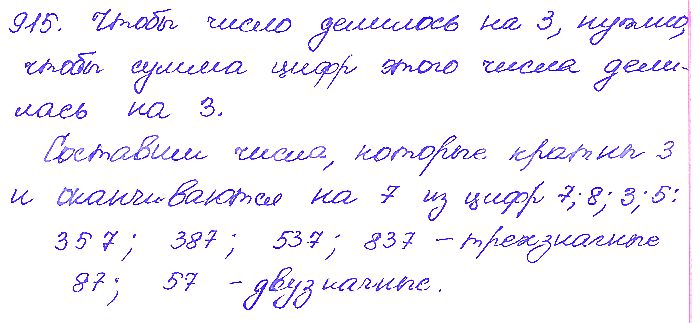 915. Чтобы число делилось на 3, нужно,
чтобы сумма цифр этого числа дели-
лась на 3.
Составим числа, которые кратны 3
и оканчиваются на 7 из цифр 7; 8; 3; 5:
357; 387; 537; 837 – трехзначные
87; 57 – двузначные.